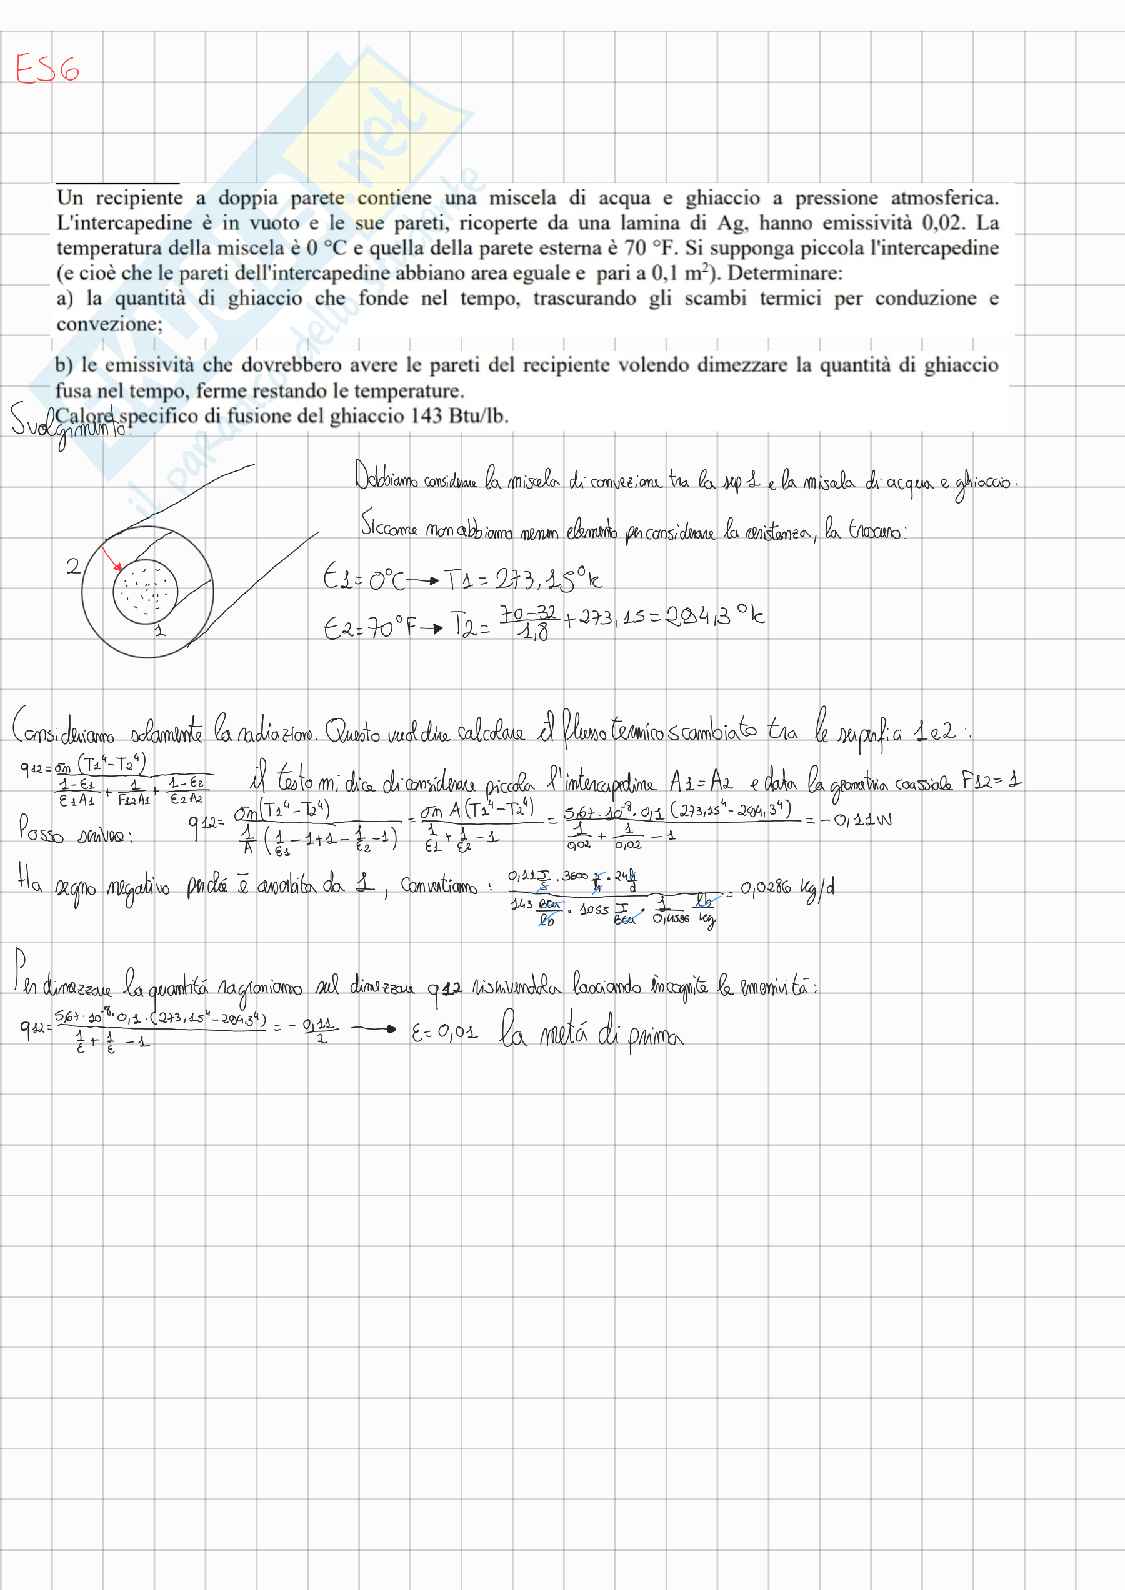 ES6
Un recipiente a doppia parete contiene una miscela di acqua e ghiaccio a pressione atmosferica.
L'intercapedine è in vuoto e le sue pareti, ricoperte da una lamina di Ag, hanno emissività 0,02. La
temperatura della miscela è 0 °C e quella della parete esterna è 70 °F. Si supponga piccola l'intercapedine
(e cioè che le pareti dell'intercapedine abbiano area eguale e pari a 0,1 m²). Determinare:
a) la quantità di ghiaccio che fonde nel tempo, trascurando gli scambi termici per conduzione e
convezione;
b) le emissività che dovrebbero avere le pareti del recipiente volendo dimezzare la quantità di ghiaccio
fusa nel tempo, ferme restando le temperature.
Calore specifico di fusione del ghiaccio 143 Btu/lb.
Svolgimento:
Dobbiamo considerare la miscela di convezione tra la sup 1 e la miscela di acqua e ghiaccio.
Siccome non abbiamo nessun elemento per considerare la resistenza, la trascuro:
2
1
t1=0°C → T1=273,15°k
t2=70°F → T2= (70-32)/1,8 +273,15=294,3°k
Consideriamo solamente la radiazione. Questo vuol dire calcolare il flusso termico scambiato tra le superfici 1 e 2:
q12= σn(T1⁴-T2⁴) / ((1-ε1)/(ε1A1) + 1/(F12A1) + (1-ε2)/(ε2A2)) il testo mi dice di considerare piccola l'intercapedine A1=A2 e data la geometria coassiale F12=1
Posso scrivere: q12= σn(T1⁴-T2⁴) / (1/A (1/ε1 -1+1- 1/ε2 -1)) = σn A(T1⁴-T2⁴) / (1/ε1 + 1/ε2 -1) = 5,67·10⁻⁸·0,1(273,15⁴-294,3⁴) / (1/0,02 + 1/0,02 -1) = -0,11W
Ha segno negativo perché è assorbita da 1, convertiamo: (0,11 J/s · 3600 s/h · 24 h/d) / (143 Btu/lb · 1055 J/Btu · 1/0,4536 lb/kg) = 0,0286 kg/d
Per dimezzare la quantità ragioniamo sul dimezzare q12 riscrivendola lasciando incognite le emissività:
q12= 5,67·10⁻⁸·0,1·(273,15⁴-294,3⁴) / (1/ε + 1/ε -1) = -0,11/2 → ε=0,01 la metá di prima